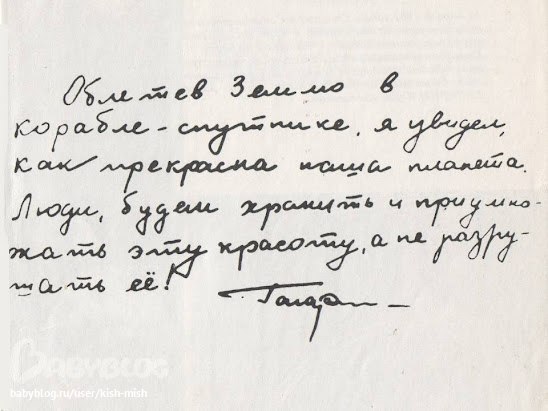 Облетев Землю в
корабле-спутнике, я увидел,
как прекрасна наша планета.
Люди, будем хранить и приумно-
жать эту красоту, а не разру-
шать её!
Гагарин
BABYBLOG
babyblog.ru/user/kish-mish